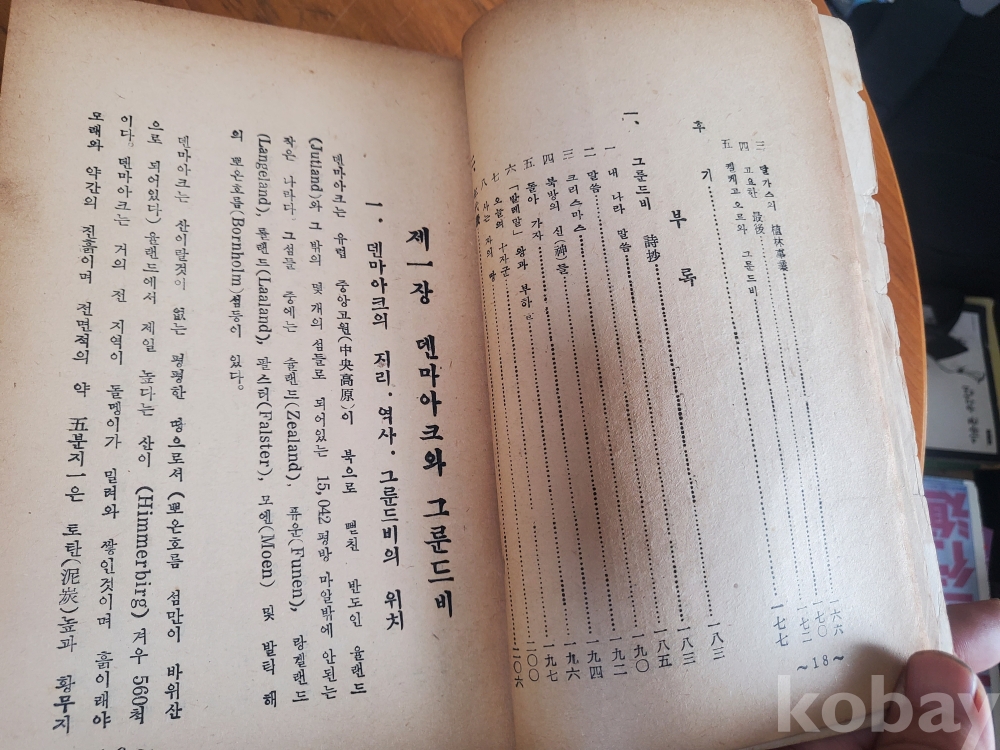 三 달가스의 植林事業 一六六
四 고요한 最後 一七〇
五 켈케고오르와 그룬드비 一七二
후기 一七七
부록 一八三
一、 그룬드비 詩抄 一八三
一 내 나라 말씀 一八五
二 말씀 一九〇
三 크리스마스 一九二
四 북방의 신(神)들 一九四
五 돌아 가자 一九六
六 「발데말」왕과 부하 一九七
七 오늘의 十자군 二〇〇
八 사는 자의 땅 二〇六
~18~
제一장 덴마아크와 그룬드비
1. 덴마아크의 지리·역사·그룬드비의 위치
덴마아크는 유럽 중앙고원(中央高原)이 북으로 뻗친 반도인 율랜드
(Jutland)와 그 밖의 몇 개의 섬들로 되어있는 15,042 평방 마알밖에 안되는
작은 나라다. 그섬들 중에는 슐랜드(Zealand), 퓨운(Funen), 랑겔랜드
(Langeland), 롤랜드(Laaland), 팔스터(Falster), 모엔(Moen) 및 발틱 해
의 뽀온호름(Bornholm)섬등이 있다.
덴마아크는 산이랄것이 없는 평평한 땅으로서 (뽀온호름 섬만이 바위산
으로 되어있다) 율랜드에서 제일 높다는 산이 (Himmerbirg) 겨우 560척
이다. 덴마아크는 거의 전 지역이 돌멩이가 밀려와 쌓인것이며 흙이래야
모래와 약간의 진흙이며 전면적의 약 五분지一은 토탄(泥炭)높과 황무지
kobay